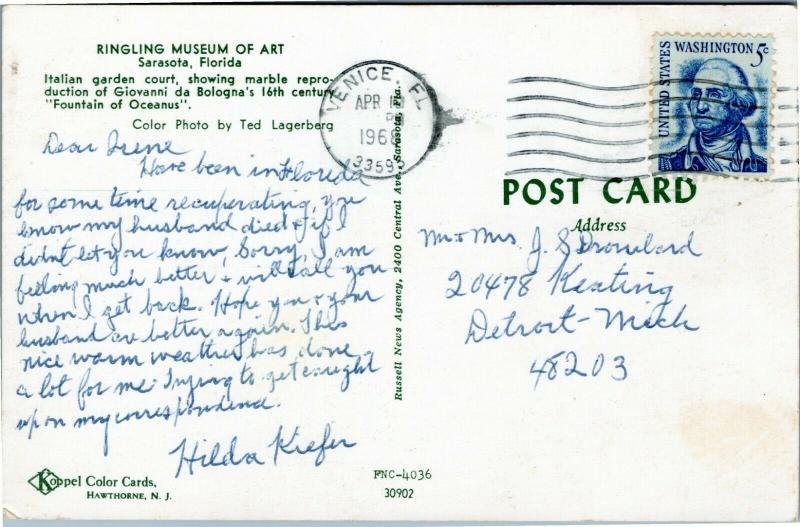 RINGLING MUSEUM OF ART
Sarasota, Florida
Italian garden court, showing marble repro-
duction of Giovanni da Bologna's 16th century
"Fountain of Oceanus".
Color Photo by Ted Lagerberg
Dear Irene
Have been in Florida
for some time recuperating, you
know my husband died & if I
didnt let you know, Sorry, I am
feeling much better & will call you
when I get back. Hope you & your
husband are better again. This
nice warm weather has done
a lot for me. Trying to get caught
up on my correspondence.
Hilda Kiefer
Koppel Color Cards,
HAWTHORNE, N. J.
FNC-4036
30902
Russell News Agency, 2400 Central Ave., Sarasota, Fla.
VENICE, FL
APR
1968
33595
UNITED STATES
WASHINGTON 5c
POST CARD
Address
Mr & Mrs J. S
20478 Keating
Detroit - Mich
48203